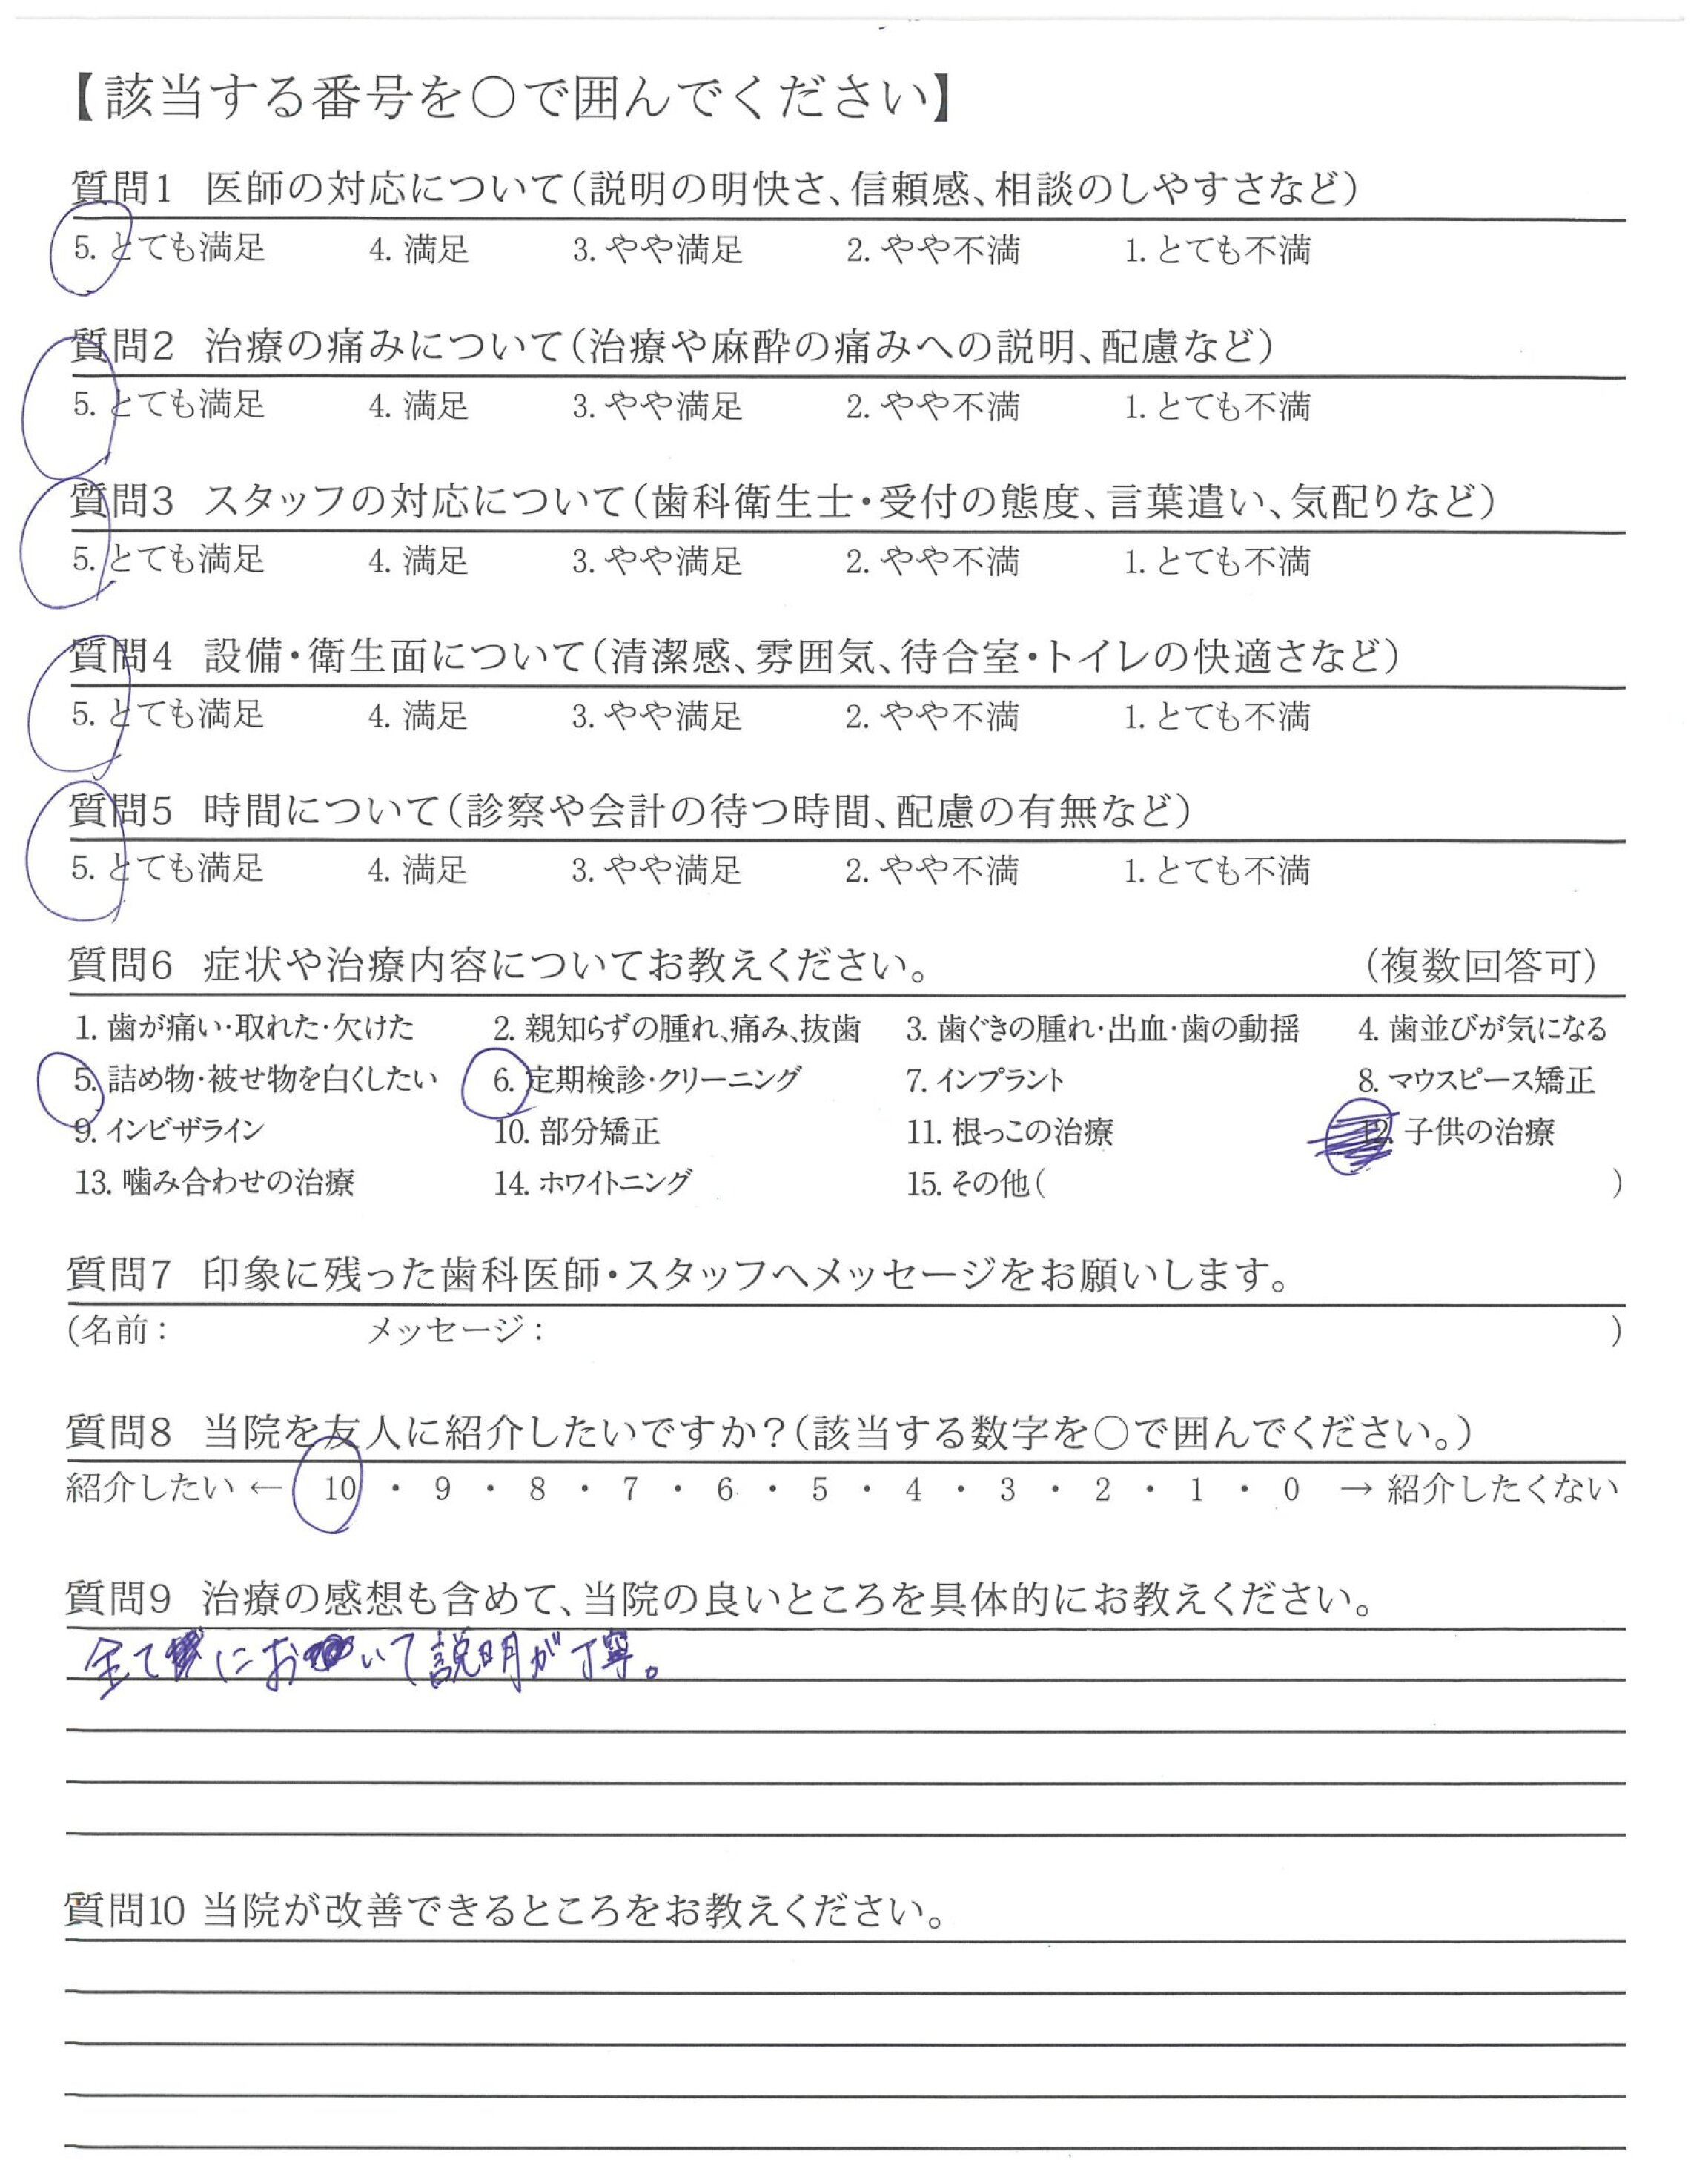 【該当する番号を○で囲んでください】
質問1 医師の対応について(説明の明快さ、信頼感、相談のしやすさなど)
5. とても満足 4. 満足 3. やや満足 2. やや不満 1. とても不満
質問2 治療の痛みについて(治療や麻酔の痛みへの説明、配慮など)
5. とても満足 4. 満足 3. やや満足 2. やや不満 1. とても不満
質問3 スタッフの対応について(歯科衛生士・受付の態度、言葉遣い、気配りなど)
5. とても満足 4. 満足 3. やや満足 2. やや不満 1. とても不満
質問4 設備・衛生面について(清潔感、雰囲気、待合室・トイレの快適さなど)
5. とても満足 4. 満足 3. やや満足 2. やや不満 1. とても不満
質問5 時間について(診察や会計の待つ時間、配慮の有無など)
5. とても満足 4. 満足 3. やや満足 2. やや不満 1. とても不満
質問6 症状や治療内容についてお教えください。 (複数回答可)
1. 歯が痛い・取れた・欠けた 2. 親知らずの腫れ、痛み、抜歯 3. 歯ぐきの腫れ・出血・歯の動揺 4. 歯並びが気になる
5. 詰め物・被せ物を白くしたい 6. 定期検診・クリーニング 7. インプラント 8. マウスピース矯正
9. インビザライン 10. 部分矯正 11. 根っこの治療 12. 子供の治療
13. 噛み合わせの治療 14. ホワイトニング 15. その他( )
質問7 印象に残った歯科医師・スタッフへメッセージをお願いします。
(名前: メッセージ: )
質問8 当院を友人に紹介したいですか?(該当する数字を○で囲んでください。)
紹介したい ← 10 ・ 9 ・ 8 ・ 7 ・ 6 ・ 5 ・ 4 ・ 3 ・ 2 ・ 1 ・ 0 → 紹介したくない
質問9 治療の感想も含めて、当院の良いところを具体的にお教えください。
全てにおいて説明が丁寧。
質問10 当院が改善できるところをお教えください。